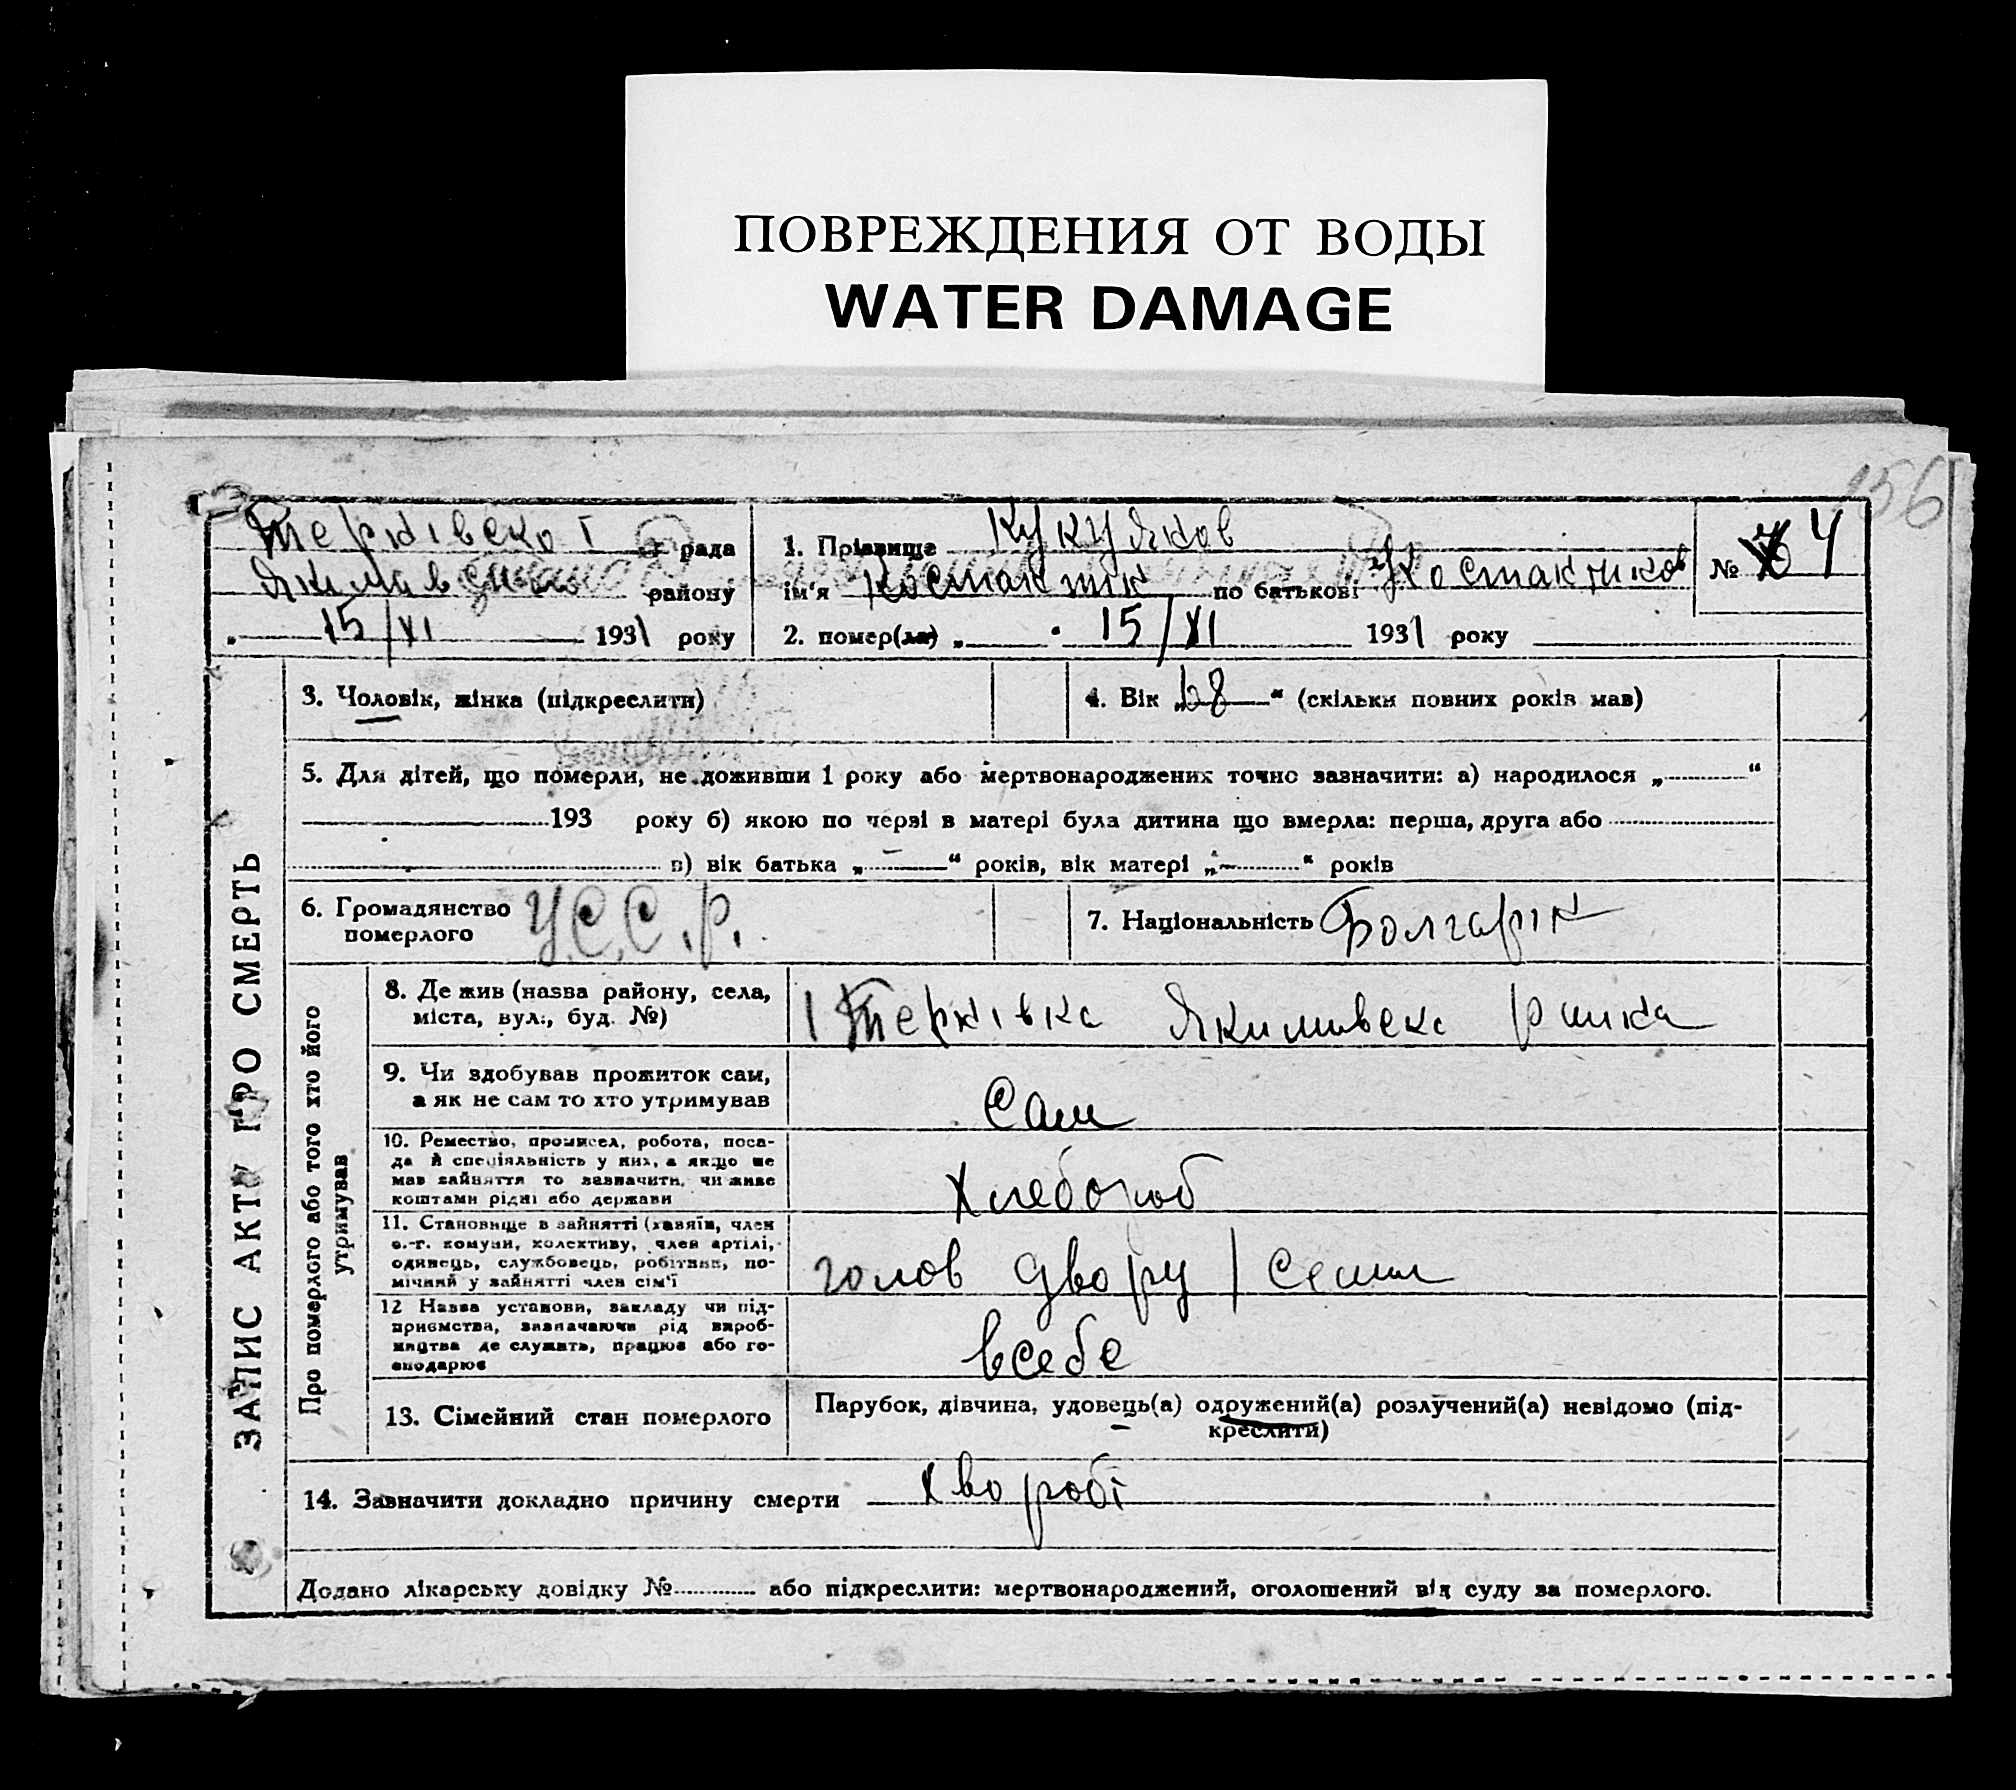 ПОВРЕЖДЕНИЯ ОТ ВОДЫ
WATER DAMAGE
156
рада
району
15/XI 1931 року
1. Прізвище Кукуляков
ім'я по батькові
№ 4
2. помер(ла) „ " 15/XI 1931 року
ЗАПИС АКТУ ПРО СМЕРТЬ
3. Чоловік, жінка (підкреслити)
4. Вік „68“ (скільки повних років мав)
5. Для дітей, що померли, не доживши 1 року або мертвонароджених точно зазначити: а) народилося „ “
193 року б) якою по черзі в матері була дитина що вмерла: перша, друга або
в) вік батька „ – “ років, вік матері „ – “ років
6. Громадянство
померлого У.С.С.Р.
7. Національність Болгарін
Про померлого або того хто його
утримував
8. Де жив (назва району, села,
міста, вул., буд. №)
9. Чи здобував прожиток сам,
а як не сам то хто утримував
Сам
10. Ремество, промисел, робота, поса-
да й спеціяльність у них, а якщо не
мав зайняття то зазначити, чи живе
коштами рідні або держави
Хлебороб
11. Становище в зайнятті (хазяїн, член
с.-г. комуни, колективу, член артілі,
одинець, службовець, робітник, по-
мічний у зайнятті член сім'ї
голов двору / Семи
12 Назва установи, закладу чи під-
приємства, зазначаючи рід вироб-
ництва де служить, працює або го-
сподарює
в себе
13. Сімейний стан померлого
Парубок, дівчина, удовець(а) одружений(а) розлучений(а) невідомо (під-
креслити)
14. Зазначити докладно причину смерти хворобі
Додано лікарську довідку № або підкреслити: мертвонароджений, оголошений від суду за померлого.